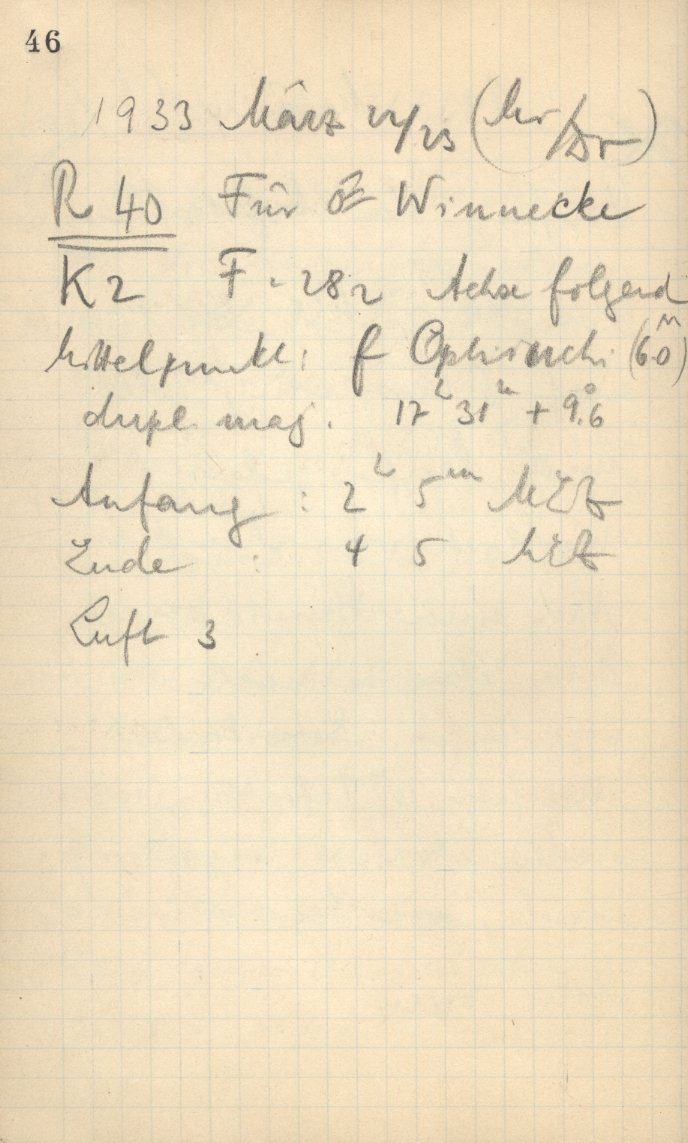 46
1933 März 22/23 (Mi/Do)
R 40 Für ☄ Winnecke
K2 F. 282 Achse folgend
Mittelpunkt: f Ophiuchi (6.0ᴹ)
dupl. maj. 17ʰ 31ᵐ + 9°.6
Anfang : 2ʰ 5ᵐ MEZ
Ende : 4 5 MEZ
Luft 3